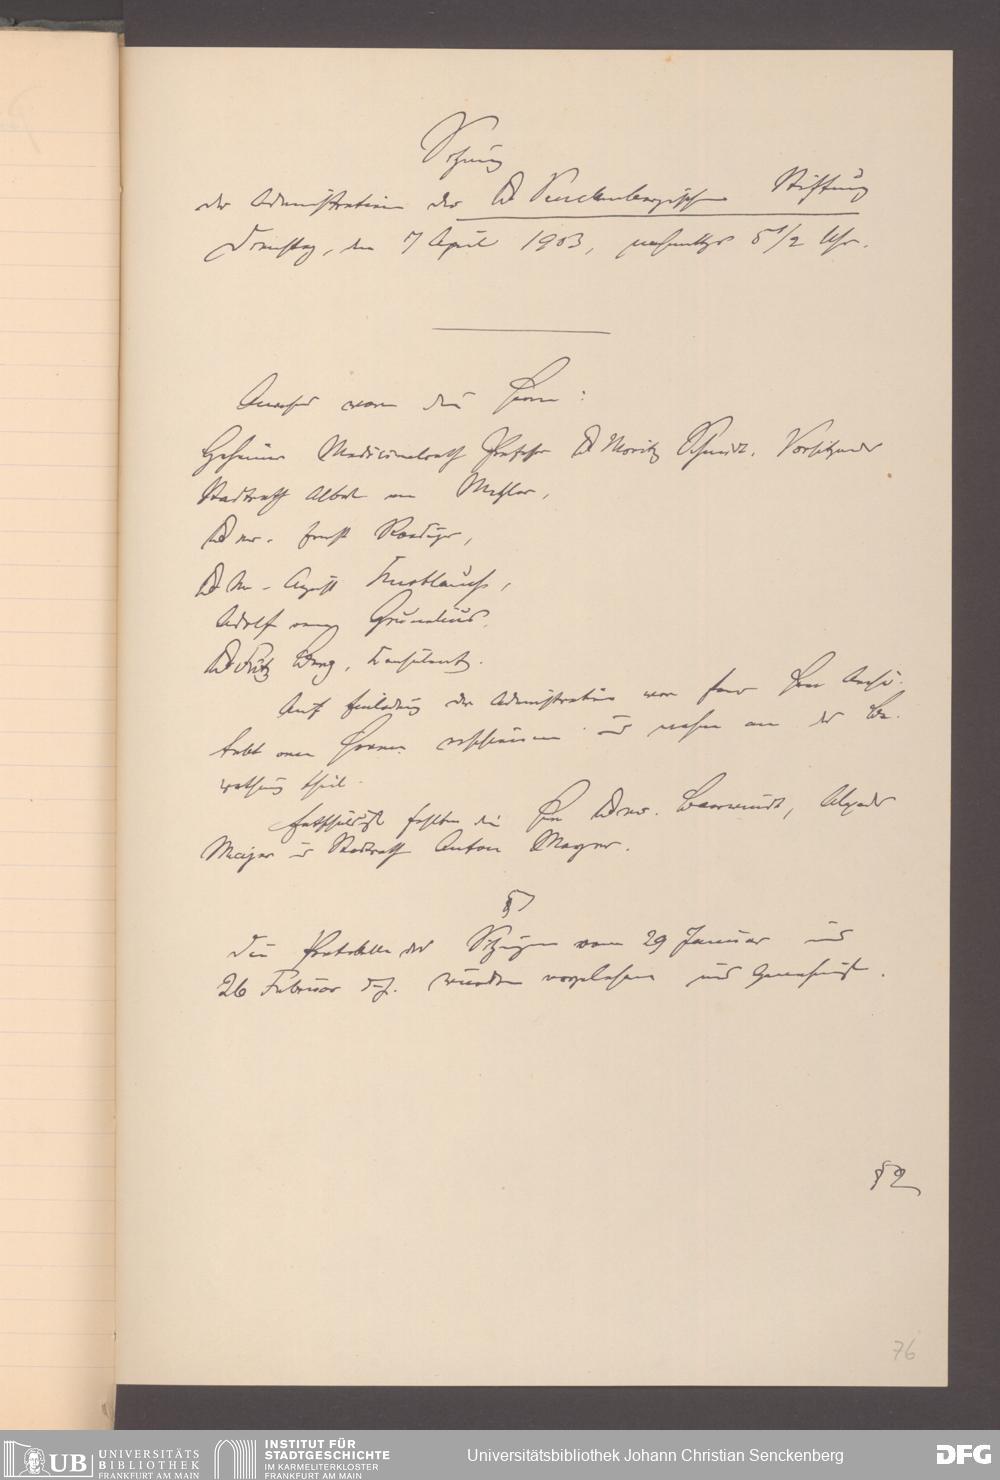 Sitzung
der Administration der Dr Senckenbergischen Stiftung
Dienstag, den 7 April 1903, nachmittgs 5 1/2 Uhr.
Anwesend waren die Herren:
Geheimer Medicinalrath Professor Dr Moritz Schmidt, Vorsitzender
Stadtrath Albert von Metzler,
Dr med. Ernst Roediger,
Dr August Knoblauch,
Adolf von Grunelius,
Dr Fritz Berg, Consulent.
Auf Einladung der Administration war Herr Archi-
tekt von Hoven erschienen und nahm an der Be-
rathung theil.
Entschuldigt fehlten die Dr med. Baerwindt, Alexander
Majer u Stadtrath Anton Mayer.
§
Die Protokolle der Sitzungen vom 29 Januar und
26 Februar d. J. wurden vorgelesen und genehmigt.
§ 2
76
UB
UNIVERSITÄTS
BIBLIOTHEK
FRANKFURT AM MAIN
INSTITUT FÜR
STADTGESCHICHTE
IM KARMELITERKLOSTER
FRANKFURT AM MAIN
Universitätsbibliothek Johann Christian Senckenberg
DFG